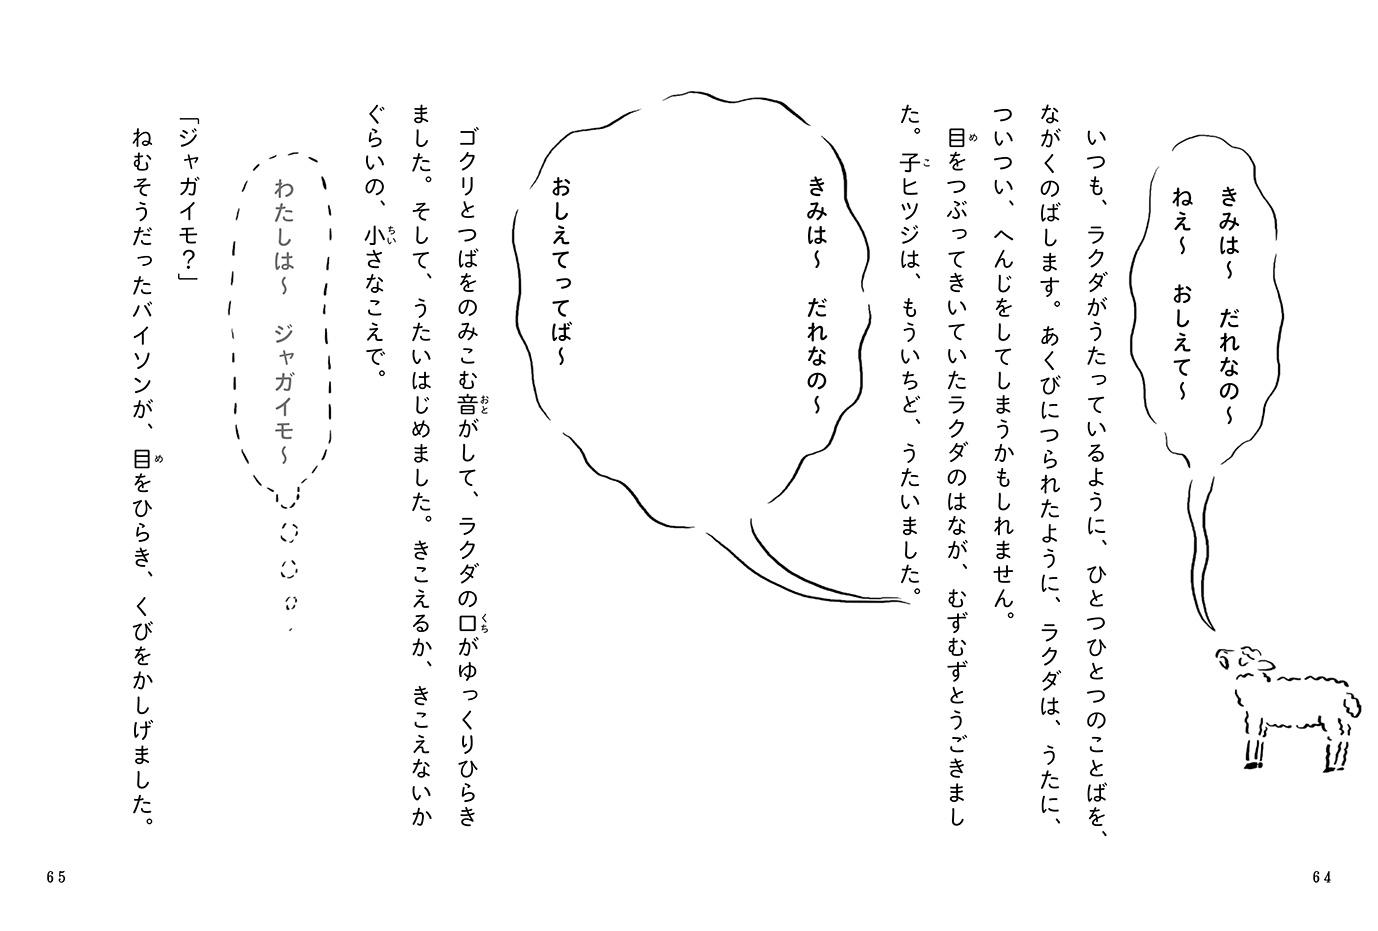 きみは～　だれなの～
ねえ～　おしえて～
いつも、ラクダがうたっているように、ひとつひとつのことばを、
ながくのばします。あくびにつられたように、ラクダは、うたに、
ついつい、へんじをしてしまうかもしれません。
目をつぶってきいていたラクダのはなが、むずむずとうごきまし
た。子ヒツジは、もういちど、うたいました。
きみは～　だれなの～
おしえてってば～
ゴクリとつばをのみこむ音がして、ラクダの口がゆっくりひらき
ました。そして、うたいはじめました。きこえるか、きこえないか
ぐらいの、小さなこえで。
わたしは～　ジャガイモ～
「ジャガイモ？」
ねむそうだったバイソンが、目をひらき、くびをかしげました。
64
65